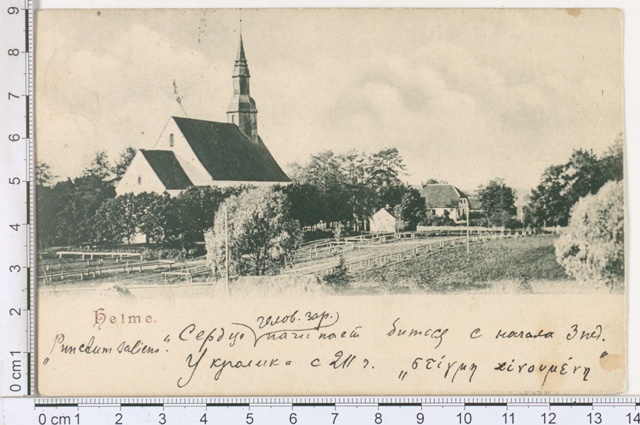 Helme.
челов. зар.
"Punctum saliens". Сердце начинает биться с начала 3 нед.
У кролика с 211 ч. "στίγμη κίνουμένη"
9
8
7
6
5
4
3
2
0 cm 1
0 cm 1 2 3 4 5 6 7 8 9 10 11 12 13 14